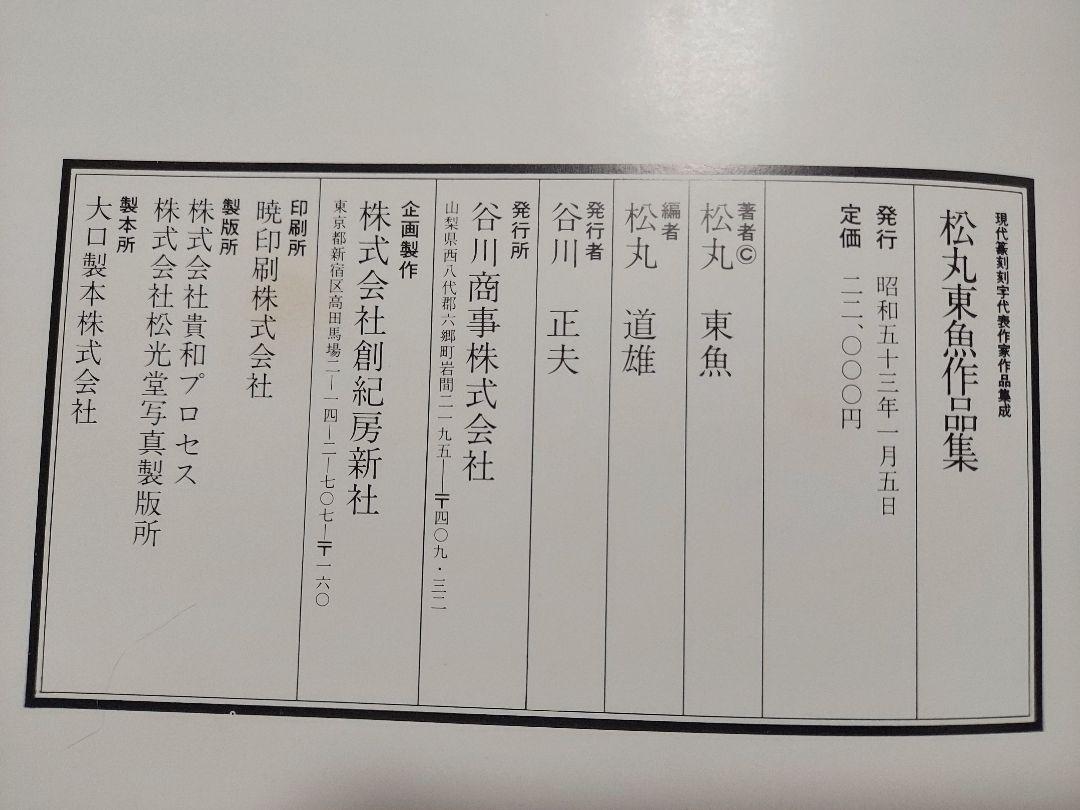 現代篆刻刻字代表作家作品集成
松丸東魚作品集
発行 昭和五十三年一月五日
定価 二二、〇〇〇円
著者©
松丸 東魚
編者
松丸 道雄
発行者
谷川 正夫
発行所
谷川商事株式会社
山梨県西八代郡六郷町岩間二一九五―〒四〇九・三二
企画製作
株式会社創紀房新社
東京都新宿区高田馬場二―一四―二―七〇七―〒一六〇
印刷所
暁印刷株式会社
製版所
株式会社貴和プロセス
株式会社松光堂写真製版所
製本所
大口製本株式会社